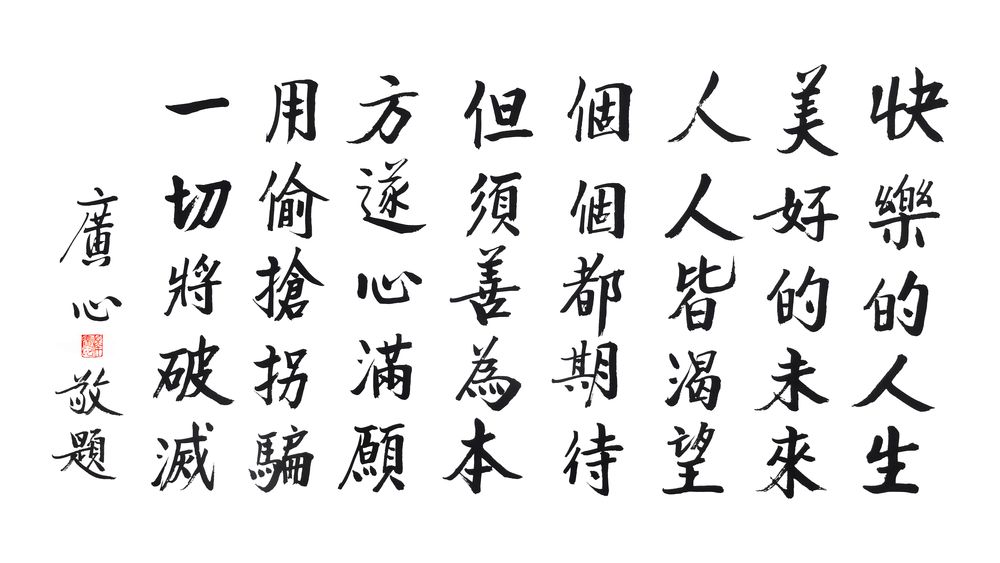 快樂的人生
美好的未來
人人皆渴望
個個都期待
但須善為本
方遂心滿願
用偷搶拐騙
一切將破滅
廣心敬題